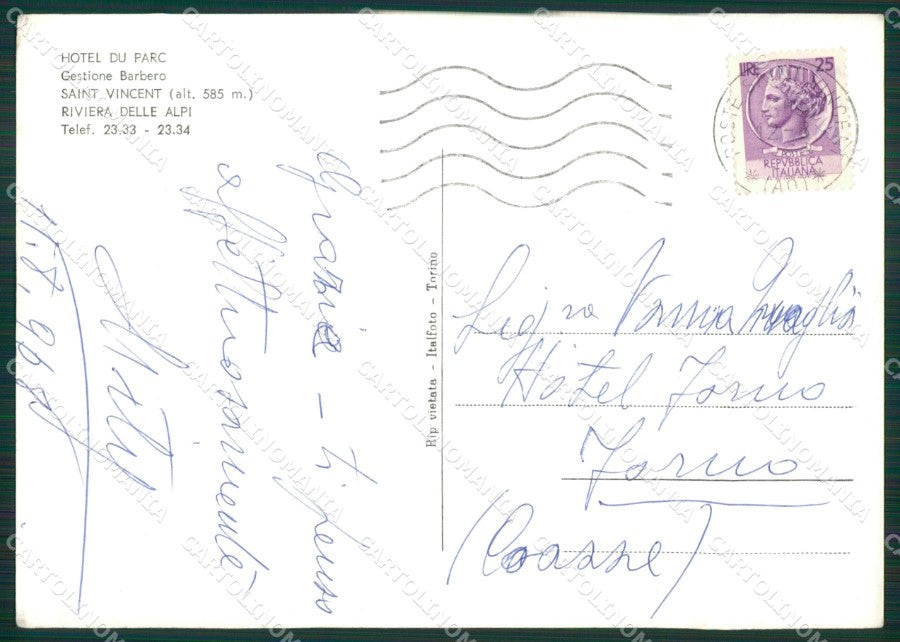 HOTEL DU PARC
Gestione Barbero
SAINT VINCENT (alt. 585 m.)
RIVIERA DELLE ALPI
Telef. 23.33 - 23.34
Grazie - ti penso
affettuosamente
11.8.968
Rip vietata - Italfoto - Torino
LIRE 25
POSTE
REPVBBLICA
ITALIANA
(AO)
Sig.ra Vanna
Hotel Forno
Forno
(Coazze)
CARTOLINOMANIA